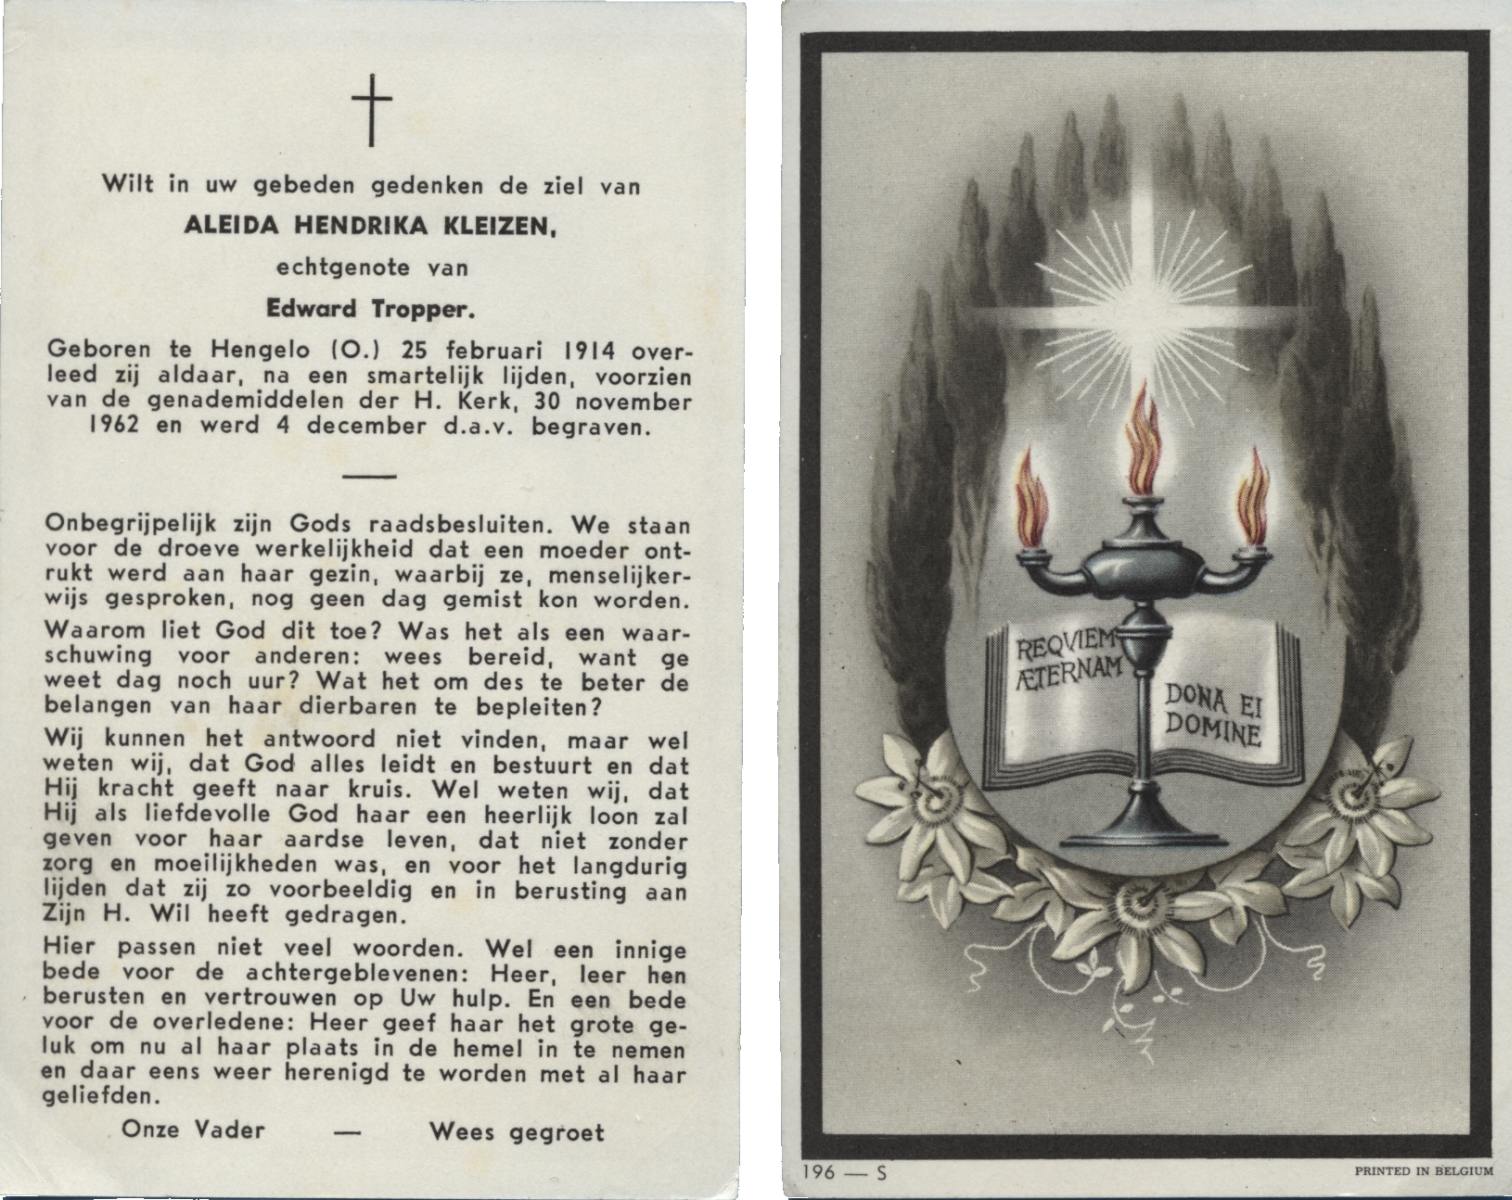 Wilt in uw gebeden gedenken de ziel van
ALEIDA HENDRIKA KLEIZEN,
echtgenote van
Edward Tropper.
Geboren te Hengelo (O.) 25 februari 1914 over-
leed zij aldaar, na een smartelijk lijden, voorzien
van de genademiddelen der H. Kerk, 30 november
1962 en werd 4 december d.a.v. begraven.
Onbegrijpelijk zijn Gods raadsbesluiten. We staan
voor de droeve werkelijkheid dat een moeder ont-
rukt werd aan haar gezin, waarbij ze, menselijker-
wijs gesproken, nog geen dag gemist kon worden.
Waarom liet God dit toe? Was het als een waar-
schuwing voor anderen: wees bereid, want ge
weet dag noch uur? Wat het om des te beter de
belangen van haar dierbaren te bepleiten?
Wij kunnen het antwoord niet vinden, maar wel
weten wij, dat God alles leidt en bestuurt en dat
Hij kracht geeft naar kruis. Wel weten wij, dat
Hij als liefdevolle God haar een heerlijk loon zal
geven voor haar aardse leven, dat niet zonder
zorg en moeilijkheden was, en voor het langdurig
lijden dat zij zo voorbeeldig en in berusting aan
Zijn H. Wil heeft gedragen.
Hier passen niet veel woorden. Wel een innige
bede voor de achtergeblevenen: Heer, leer hen
berusten en vertrouwen op Uw hulp. En een bede
voor de overledene: Heer geef haar het grote ge-
luk om nu al haar plaats in de hemel in te nemen
en daar eens weer herenigd te worden met al haar
geliefden.
Onze Vader — Wees gegroet
REQVIEM
ÆTERNAM
DONA EI
DOMINE
196 — S
PRINTED IN BELGIUM